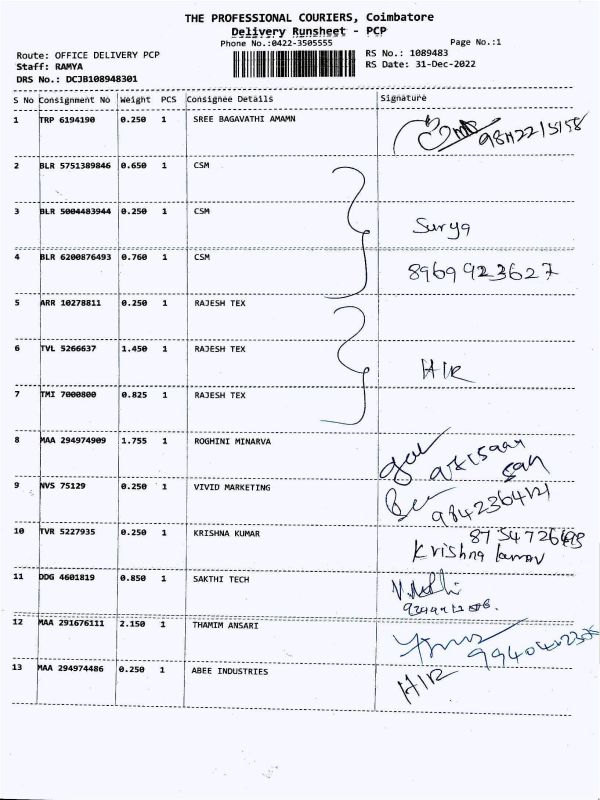 THE PROFESSIONAL COURIERS, Coimbatore
Delivery Runsheet - PCP
Phone No.:0422-3505555 Page No.:1
Route: OFFICE DELIVERY PCP RS No.: 1089483
Staff: RAMYA RS Date: 31-Dec-2022
DRS No.: DCJB108948301
S No Consignment No Weight PCS Consignee Details Signature
1 TRP 6194190 0.250 1 SREE BAGAVATHI AMAMN
2 BLR 5751389846 0.650 1 CSM
3 BLR 5004483944 0.250 1 CSM Surya
4 BLR 6200876493 0.760 1 CSM 8969923627
5 ARR 10278811 0.250 1 RAJESH TEX
6 TVL 5266637 1.450 1 RAJESH TEX HIR
7 TMI 7000800 0.825 1 RAJESH TEX
8 MAA 294974909 1.755 1 ROGHINI MINARVA
9 NVS 75129 0.250 1 VIVID MARKETING
10 TVR 5227935 0.250 1 KRISHNA KUMAR
Krishna
11 DDG 4601819 0.850 1 SAKTHI TECH
12 MAA 291676111 2.150 1 THAMIM ANSARI
13 MAA 294974486 0.250 1 ABEE INDUSTRIES HIR